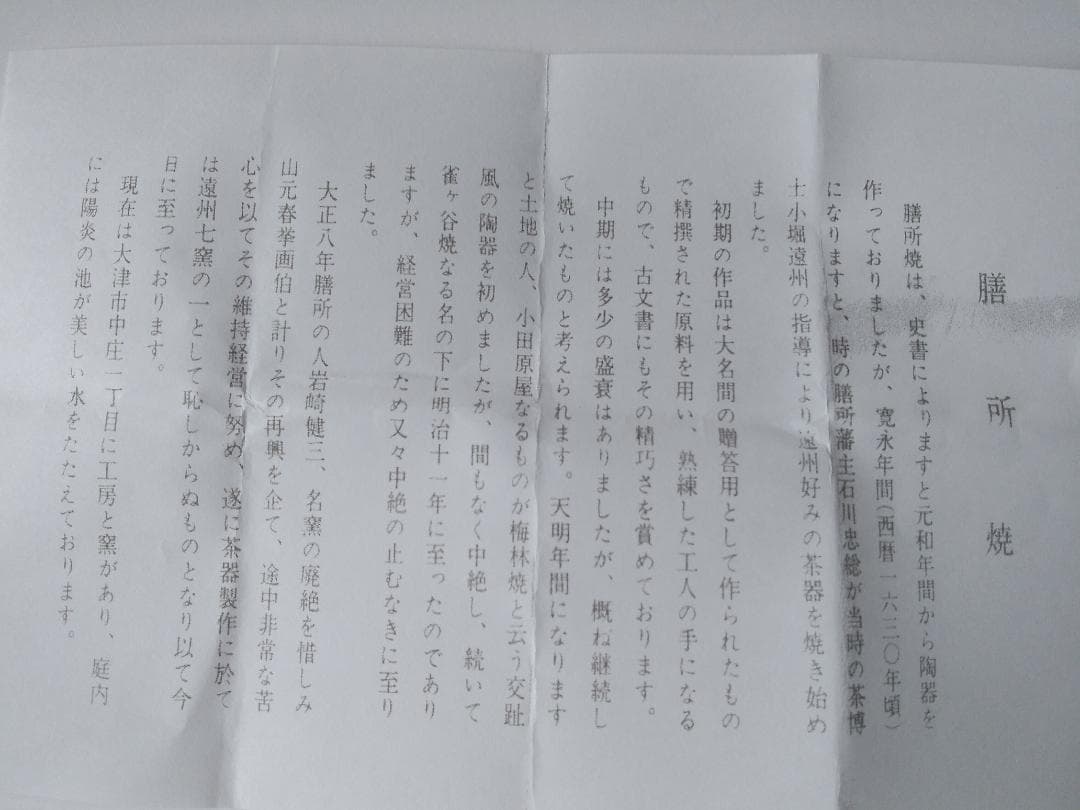 膳所焼
膳所焼は、史書によりますと元和年間から陶器を
作っておりましたが、寛永年間(西暦一六三〇年頃)
になりますと、時の膳所藩主石川忠総が当時の茶博
士小堀遠州の指導により遠州好みの茶器を焼き始め
ました。
初期の作品は大名間の贈答用として作られたもの
で精撰された原料を用い、熟練した工人の手になる
もので、古文書にもその精巧さを賞めております。
中期には多少の盛衰はありましたが、概ね継続し
て焼いたものと考えられます。天明年間になります
と土地の人、小田原屋なるものが梅林焼と云う交趾
風の陶器を初めましたが、間もなく中絶し、続いて
雀ヶ谷焼なる名の下に明治十一年に至ったのであり
ますが、経営困難のため又々中絶の止むなきに至り
ました。
大正八年膳所の人岩崎健三、名窯の廃絶を惜しみ
山元春挙画伯と計りその再興を企て、途中非常な苦
心を以てその維持経営に努め、遂に茶器製作に於て
は遠州七窯の一として恥しからぬものとなり以て今
日に至っております。
現在は大津市中庄一丁目に工房と窯があり、庭内
には陽炎の池が美しい水をたたえております。